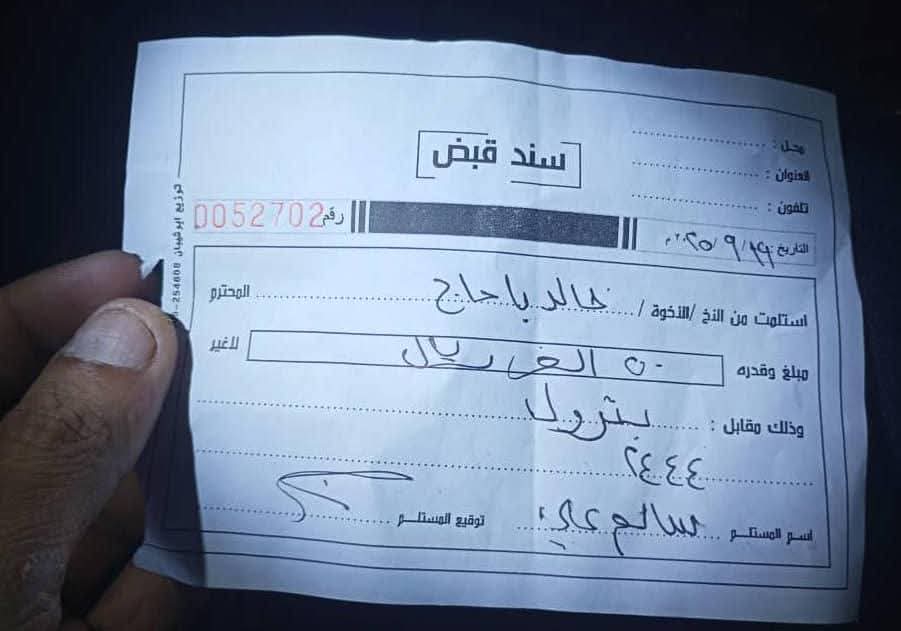 سند قبض
محل :
العنوان :
تلفون :
رقم 0052702
التاريخ : ٢٠٢٥/٩/م
استلمت من الأخ /الأخوة / خالد باحاج المحترم
مبلغ وقدره ٥٠ الف ريال لاغير
وذلك مقابل : بترول
٢٤٤٤
اسم المستلم سالم علي توقيع المستلم
توزيع ابو شيبان 254608